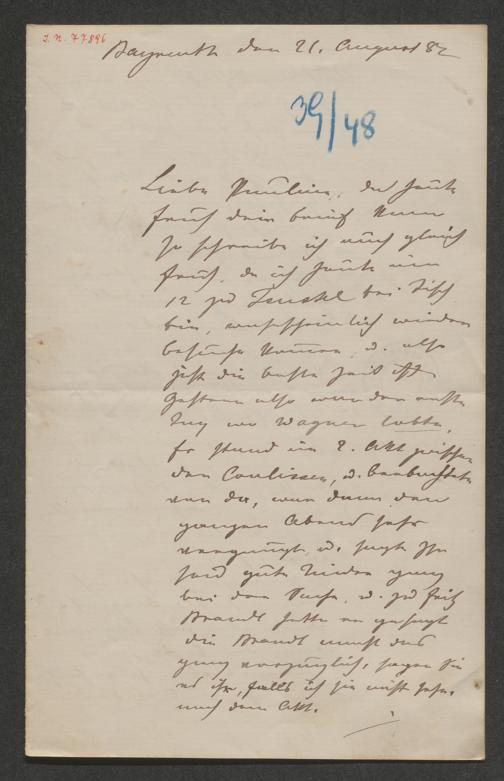 I.N. 77896
Bayreuth den 21. August 82
39/48
Liebe Pauline, da heute
früh dein Brief kam
so schreibe ich auch gleich
früh, da ich heute um
12 zu bei Tisch
bin, wahrscheinlich wieder
Besuche kommen, u. also
jetzt die beste Zeit ist.
Gestern also war der erste
Tag wo Wagner lobte,
Er stand im 2. Akt zwischen
den Coulissen, u. beobachtete
von da, war dann den
ganzen Abend sehr
vergnügt, u. sagte Ihr
seid gute Kinder ganz
bei der Sache, u. zu Fritz
Brandt hatte er gesagt
die Brandt macht das
ganz vorzüglich, sagen Sie
es ihr, falls ich sie nicht sehe,
nach dem Akt.